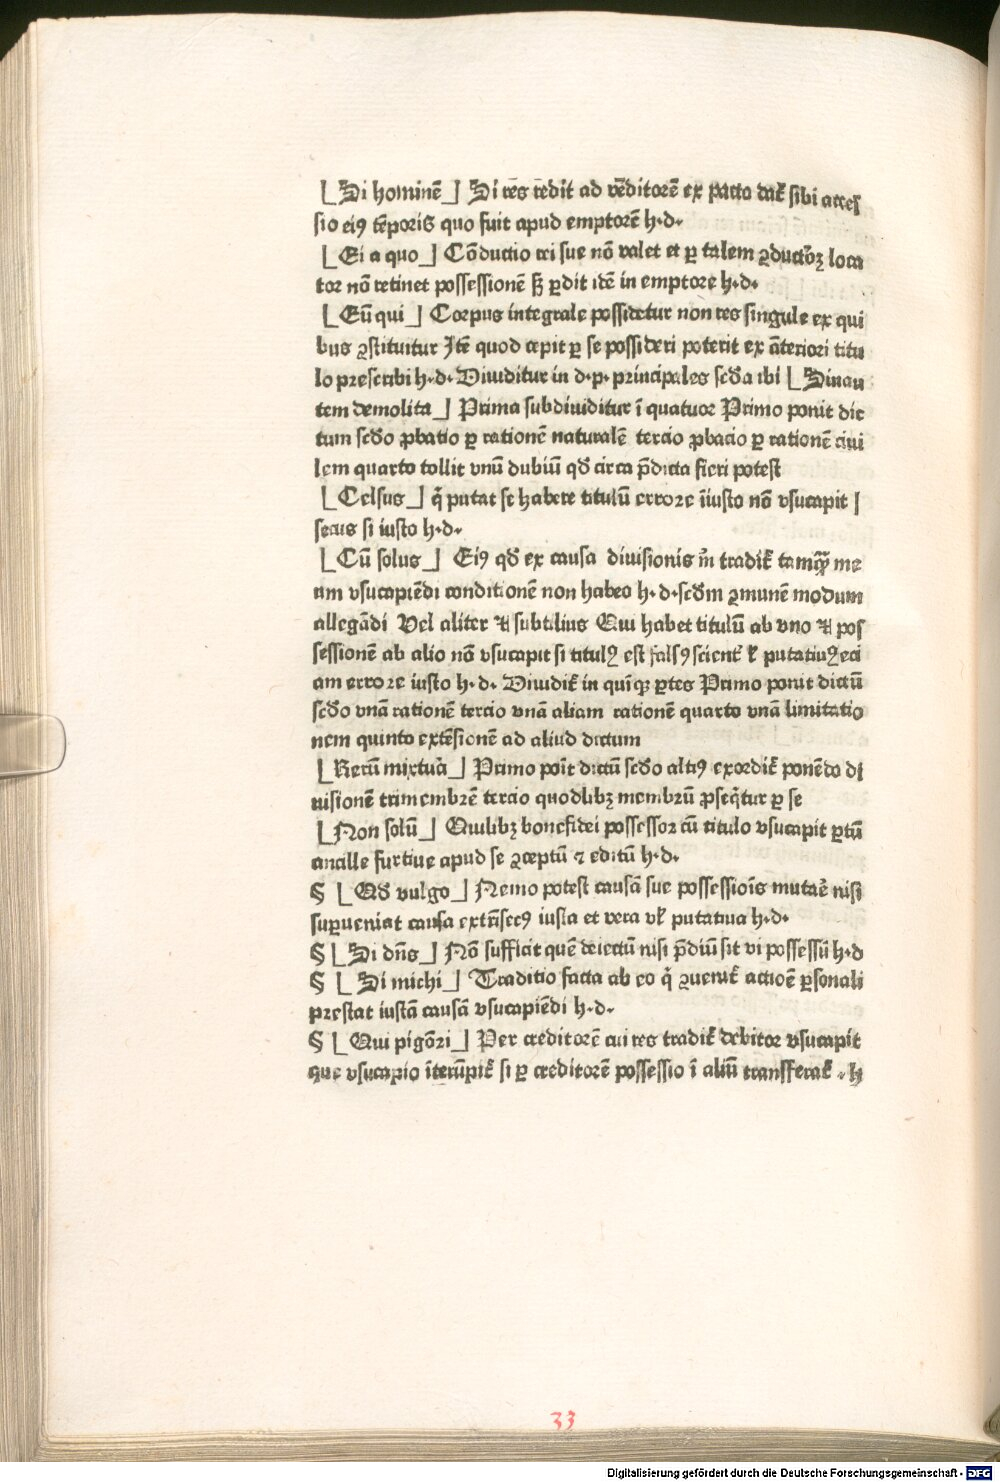 ⌊Si hominē⌋ Si res redit ad vēditorē ex pacto dat᷑ sibi acces
sio eiꝰ tēporis quo fuit apud emptorē h.d.
⌊Ei a quo⌋ Cōductio rei sue nō valet et ꝑ talem ꝯductōꝫ loca
tor nō retinet possessionē sꝫ ꝑdit idē in emptore h.d.
⌊Eū qui⌋ Corpus integrale possidetur non res singule ex qui
bus ꝯstituitur Itē quod cepit ꝑ se possideri poterit ex āteriori titu
lo prescribi h.d. Diuiditur in d.p. principales scd̄a ibi ⌊Sinau
tem demolita⌋ Prima subdiuiditur ī quatuor Primo ponit dic
tum scd̄o ꝓbatio ꝑ rationē naturalē tercio ꝓbacio ꝑ rationē ciui
lem quarto tollit vnū dubiū qd̄ circa p̄dicta fieri potest
⌊Celsus⌋ q̇ putat se habere titulū errore īiusto nō vsucapit |
secus si iusto h.d.
⌊Cū solus⌋ Eiꝰ qd̄ ex causa diuisionis m̄ tradit᷑ tamꝙ̄ me
um vsucapiēdi conditionē non habeo h.d. scd̄m ꝯmunē modum
allegādi Vel aliter ⁊ subtilius Qui habet titulū ab vno ⁊ pos
sessionē ab alio nō vsucapit si titulꝰ est falsꝰ scient᷑ ł putatiuꝰ eci
am errore iusto h.d. Diuidit᷑ in quīqꝫ ꝑtes Primo ponit dictū
scd̄o vnā rationē tercio vnā aliam rationē quarto vnā limitatio
nem quinto extēsionē ad aliud dictum
⌊Rerū mixtura⌋ Primo poīt dictū scd̄o altiꝰ exordit᷑ ponēdo di
uisionē trimembrē tercio quodlibꝫ membrū ꝓseq̄tur ꝑ se
⌊Non solū⌋ Quilibꝫ bonefidei possessor cū titulo vsucapit ꝑtū
ancille furtiue apud se ꝯceptū ⁊ editū h.d.
§ ⌊Qd̄ vulgo⌋ Nemo potest causā sue possessiōis mutaē nisi
suꝑueniat causa extr̄secꝰ iusta et vera vł putatiua h.d.
§ ⌊Si dn̄s⌋ Nō sufficit quē deiectū nisi p̄diū sit vi possessū h.d
§ ⌊Si michi⌋ Traditio facta ab eo q̇ ꝯuenit᷑ actiōē ꝑsonali
prestat iustā causā vsucapiēdi h.d.
§ ⌊Qui pigōri⌋ Per creditorē cui res tradit᷑ debitor vsucapit
que vsucapio īterūpit᷑ si ꝑ creditorē possessio ī aliū transferat᷑ . h
33
Digitalisierung gefördert durch die Deutsche Forschungsgemeinschaft - DFG